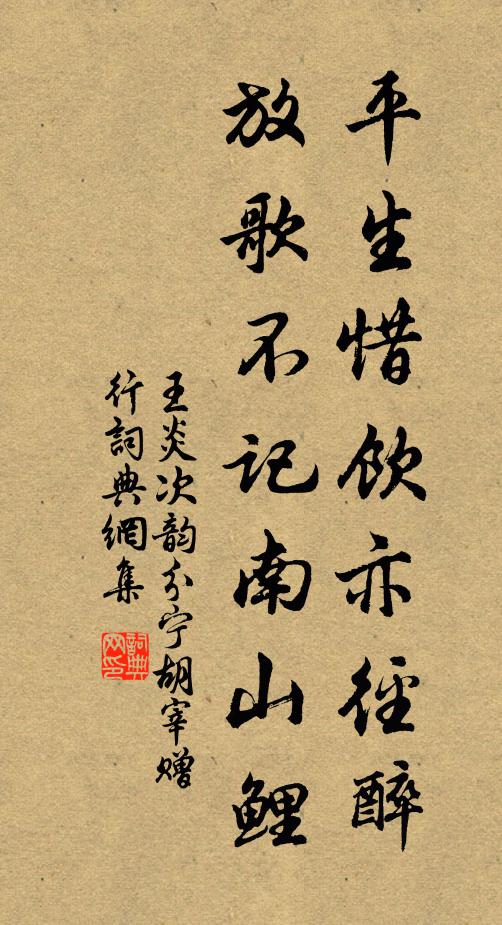 平生惜飲亦徑醉
放歌不记南山鲤
王炎次韵分宁胡宰赠
行詞典網集
詞典网印